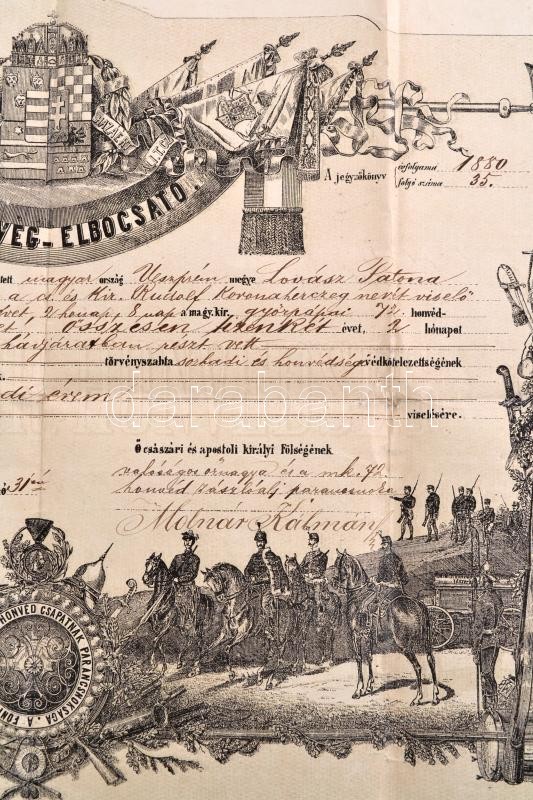 A jegyzőkönyv évfolyama 1880
folyó száma 35.
VÉG-ELBOCSÁTÓ.
magyar ország Veszprém megye Lovász Patona
a d. és Kir. Rudolf Koronaherczeg nevét viselő
évet, 2 hónap, 8 nap a magy. kir. győrpápai 72. honvéd-
összesen tizenkét évet, 2 hónapot
hadjáratban részt vett
törvényszabta sorhadi és honvédségi védkötelezettségének
di érem
viselésére.
Ő császári és apostoli királyi Fölségének
31én valóságos őrnagya és a m. k. 72
honvéd zászlóalj parancsnoka
Molnár Kálmán
HONVÉD CSAPATNAK PARANCSNOKSÁGA. A
darabanth